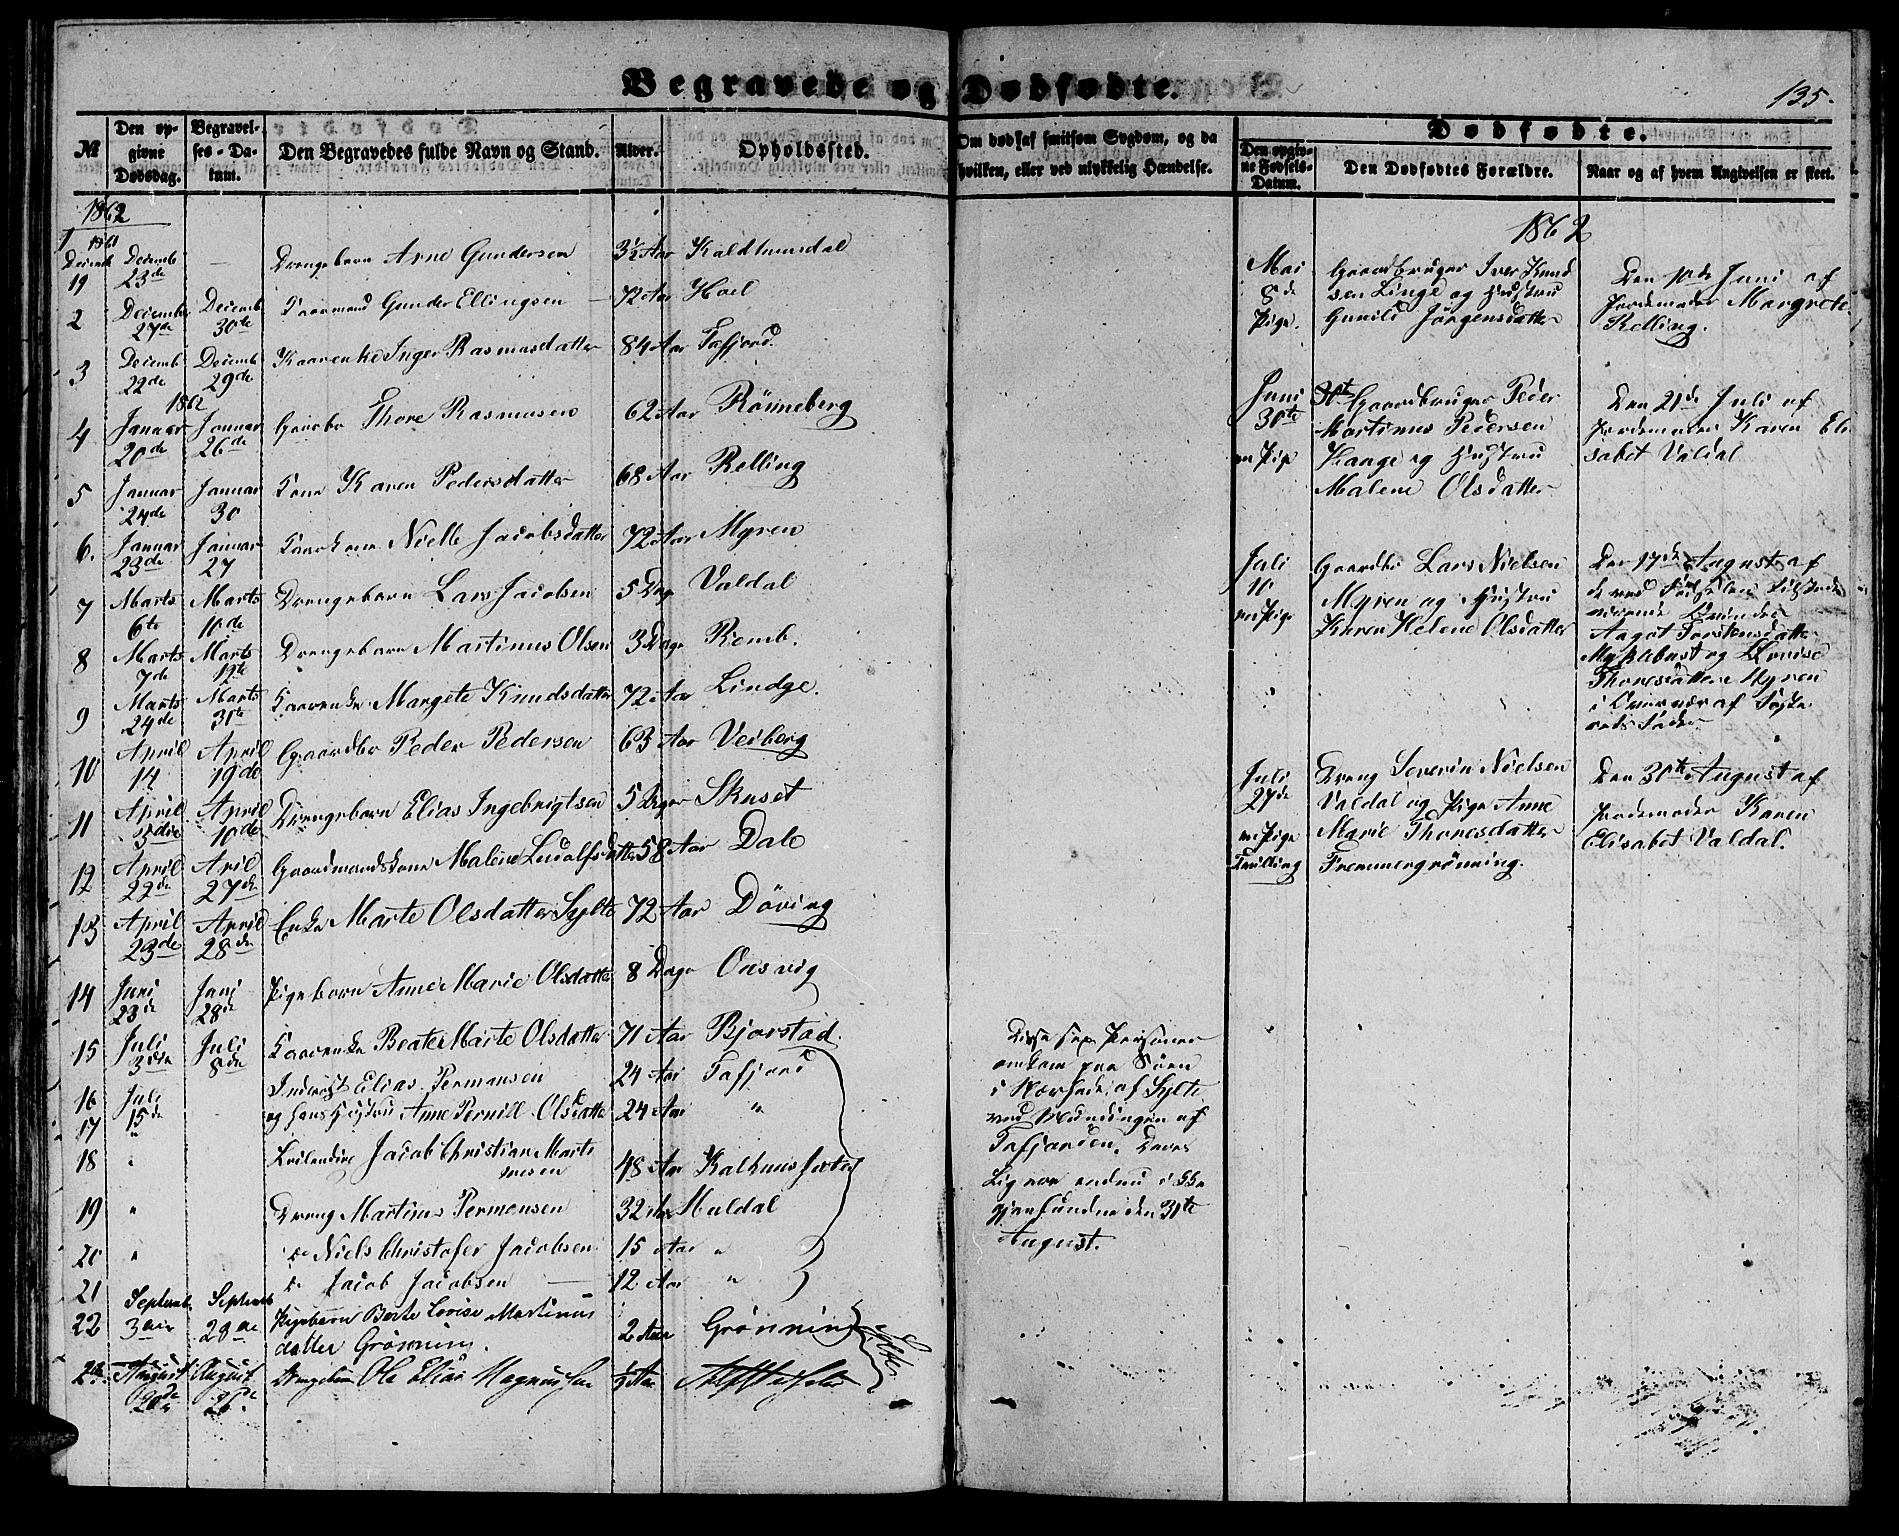 Begravede og Dødfødte.
135.
№
Den opgivne Dødsdag.
Begravelses-Datum.
Den Begravedes fulde Navn og Stand.
Alder.
Opholdssted.
Om død af smitsom Sygdom, og da hvilken, eller ved ulykkelig Hændelse.
Dødfødte.
Den opgivne Fødsels-Datum.
Den Dødfødtes Forældre.
Naar og af hvem Angivelsen er skeet.
1862
1 1861 Decemb 23de Drengebarn Arne Gundersen 3½ Aar
19
2 Decembr 27de Decemb 30te Kaarmand Gunder Ellingsen 72 Aar Hoel
3 Decemb 22de Decemb 29de Kaarenke Inger Rasmusdatter 84 Aar Tafjord
1862
4 Januar 20de Januar 26de Gaardbr Thore Rasmusen 62 Aar Rönneberg
5 Januar 24de Januar 30 Kone Karen Pedersdatter 68 Aar Relling
6. Januar 23de Januar 27 Kaarkone Nielle Jacobsdatter 72 Aar Myren
7 Marts 6te Marts 10de Drengebarn Lars Jacobsen 5 Dage Valdal
8 Marts 7de Marts Drengebarn Martinus Olsen 3 Dage Remb.
9 Marts 24de Marts Kaarenke Margete Knudsdatter 72 Aar Lindge.
10 April 14 April 19de Gaardbr Peder Pedersen 63 Aar Veiberg
11 April 5die April 10de Drengebarn Elias Ingebrigtsen 5 Dager Skuset
12 April 22de April 27de Gaardmandskone Malene Ludolfsdatter 58 Aar Dale
13 April 23de April 28de Enke Marte Olsdatter Sylte 72 Aar Döving
14 Juni 23de Juni 28de Pigebarn Anne Marie Olsdatter 8 Dage Onsvig
15 Juli 3die Juli 8de Kaarenke Beate Marte Olsdatter 71 Aar Bjorstad.
16 Juli 15de Inderst Elias Permansen 24 Aar Tafjord
17 " og hans Hustru Anne Pernill Olsdatter 24 Aar "
18 " Jacob Christian Martinusen 48 Aar
19 " Dreng Martinus Permansen 32 Aar Muldal
20 " do Niels Christofer Jacobsen 15 Aar "
21 do Jacob Jacobsen 12 Aar "
22 Septemb 3die Septemb 28de Pigebarn Berte Lovise Martinusdatter Grönning. 2 Aar Grönning
August 20de August 26de Drengebarn Ole Elias Magnussen ½ Aar
Disse sex Personer
omkom paa Söen
i Nærhede af Sylte
ved Mundingen af
Tafjorden. Deres
Lig var endnu i
gjenfundne den 31te
August.
1862
Mai 8de Pige.
Gaardbruger Iver Knud
sen Linge og Hustru
Gunild Jörgensdatter
Den 10de Juni af
Jordemoder Margrete
Relling.
Juni 30te en Pige
Gaardbruger Peder
Martinus Pedersen
Kange og Hustru
Malene Olsdatter
Den 21de Juli af
Jordemoder Karen Eli
sabet Valdal
Juli 10 en Pige
Gaardbr Lars Nielsen
Myren og Hustru
Karen Helene Olsdatter
Den 17de August af
de ved Födselen tilstede
værende Qvinder
Aagot Torstensdatter
Myklebust og Lovise
Thoresdatter Myren
i Nærvær af
Juli 27de en Pige Tvilling
Dreng Severin Nielsen
Valdal og Pige Anne
Marie Thoresdatter
Fremmergrönning.
Den 30te August af
Jordemoder Karen
Elisabet Valdal.